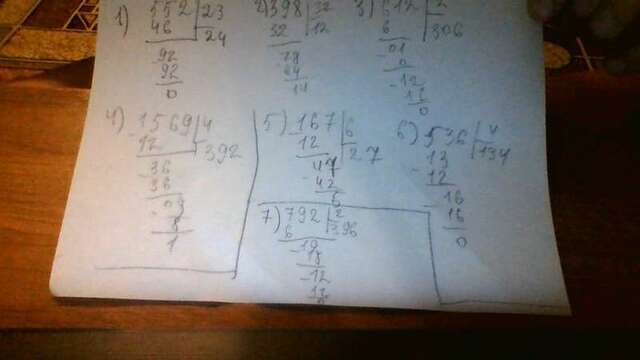 1) 552 23
46 24
92
92
0
2) 398 32
32 12
78
64
14
3) 612 2
6 306
01
0
12
12
0
4) 1569 4
12 392
36
36
09
8
1
5) 167 6
12 27
47
42
5
6) 536 4
13 134
12
16
16
0
7) 792 2
6 396
19
18
12
12
0